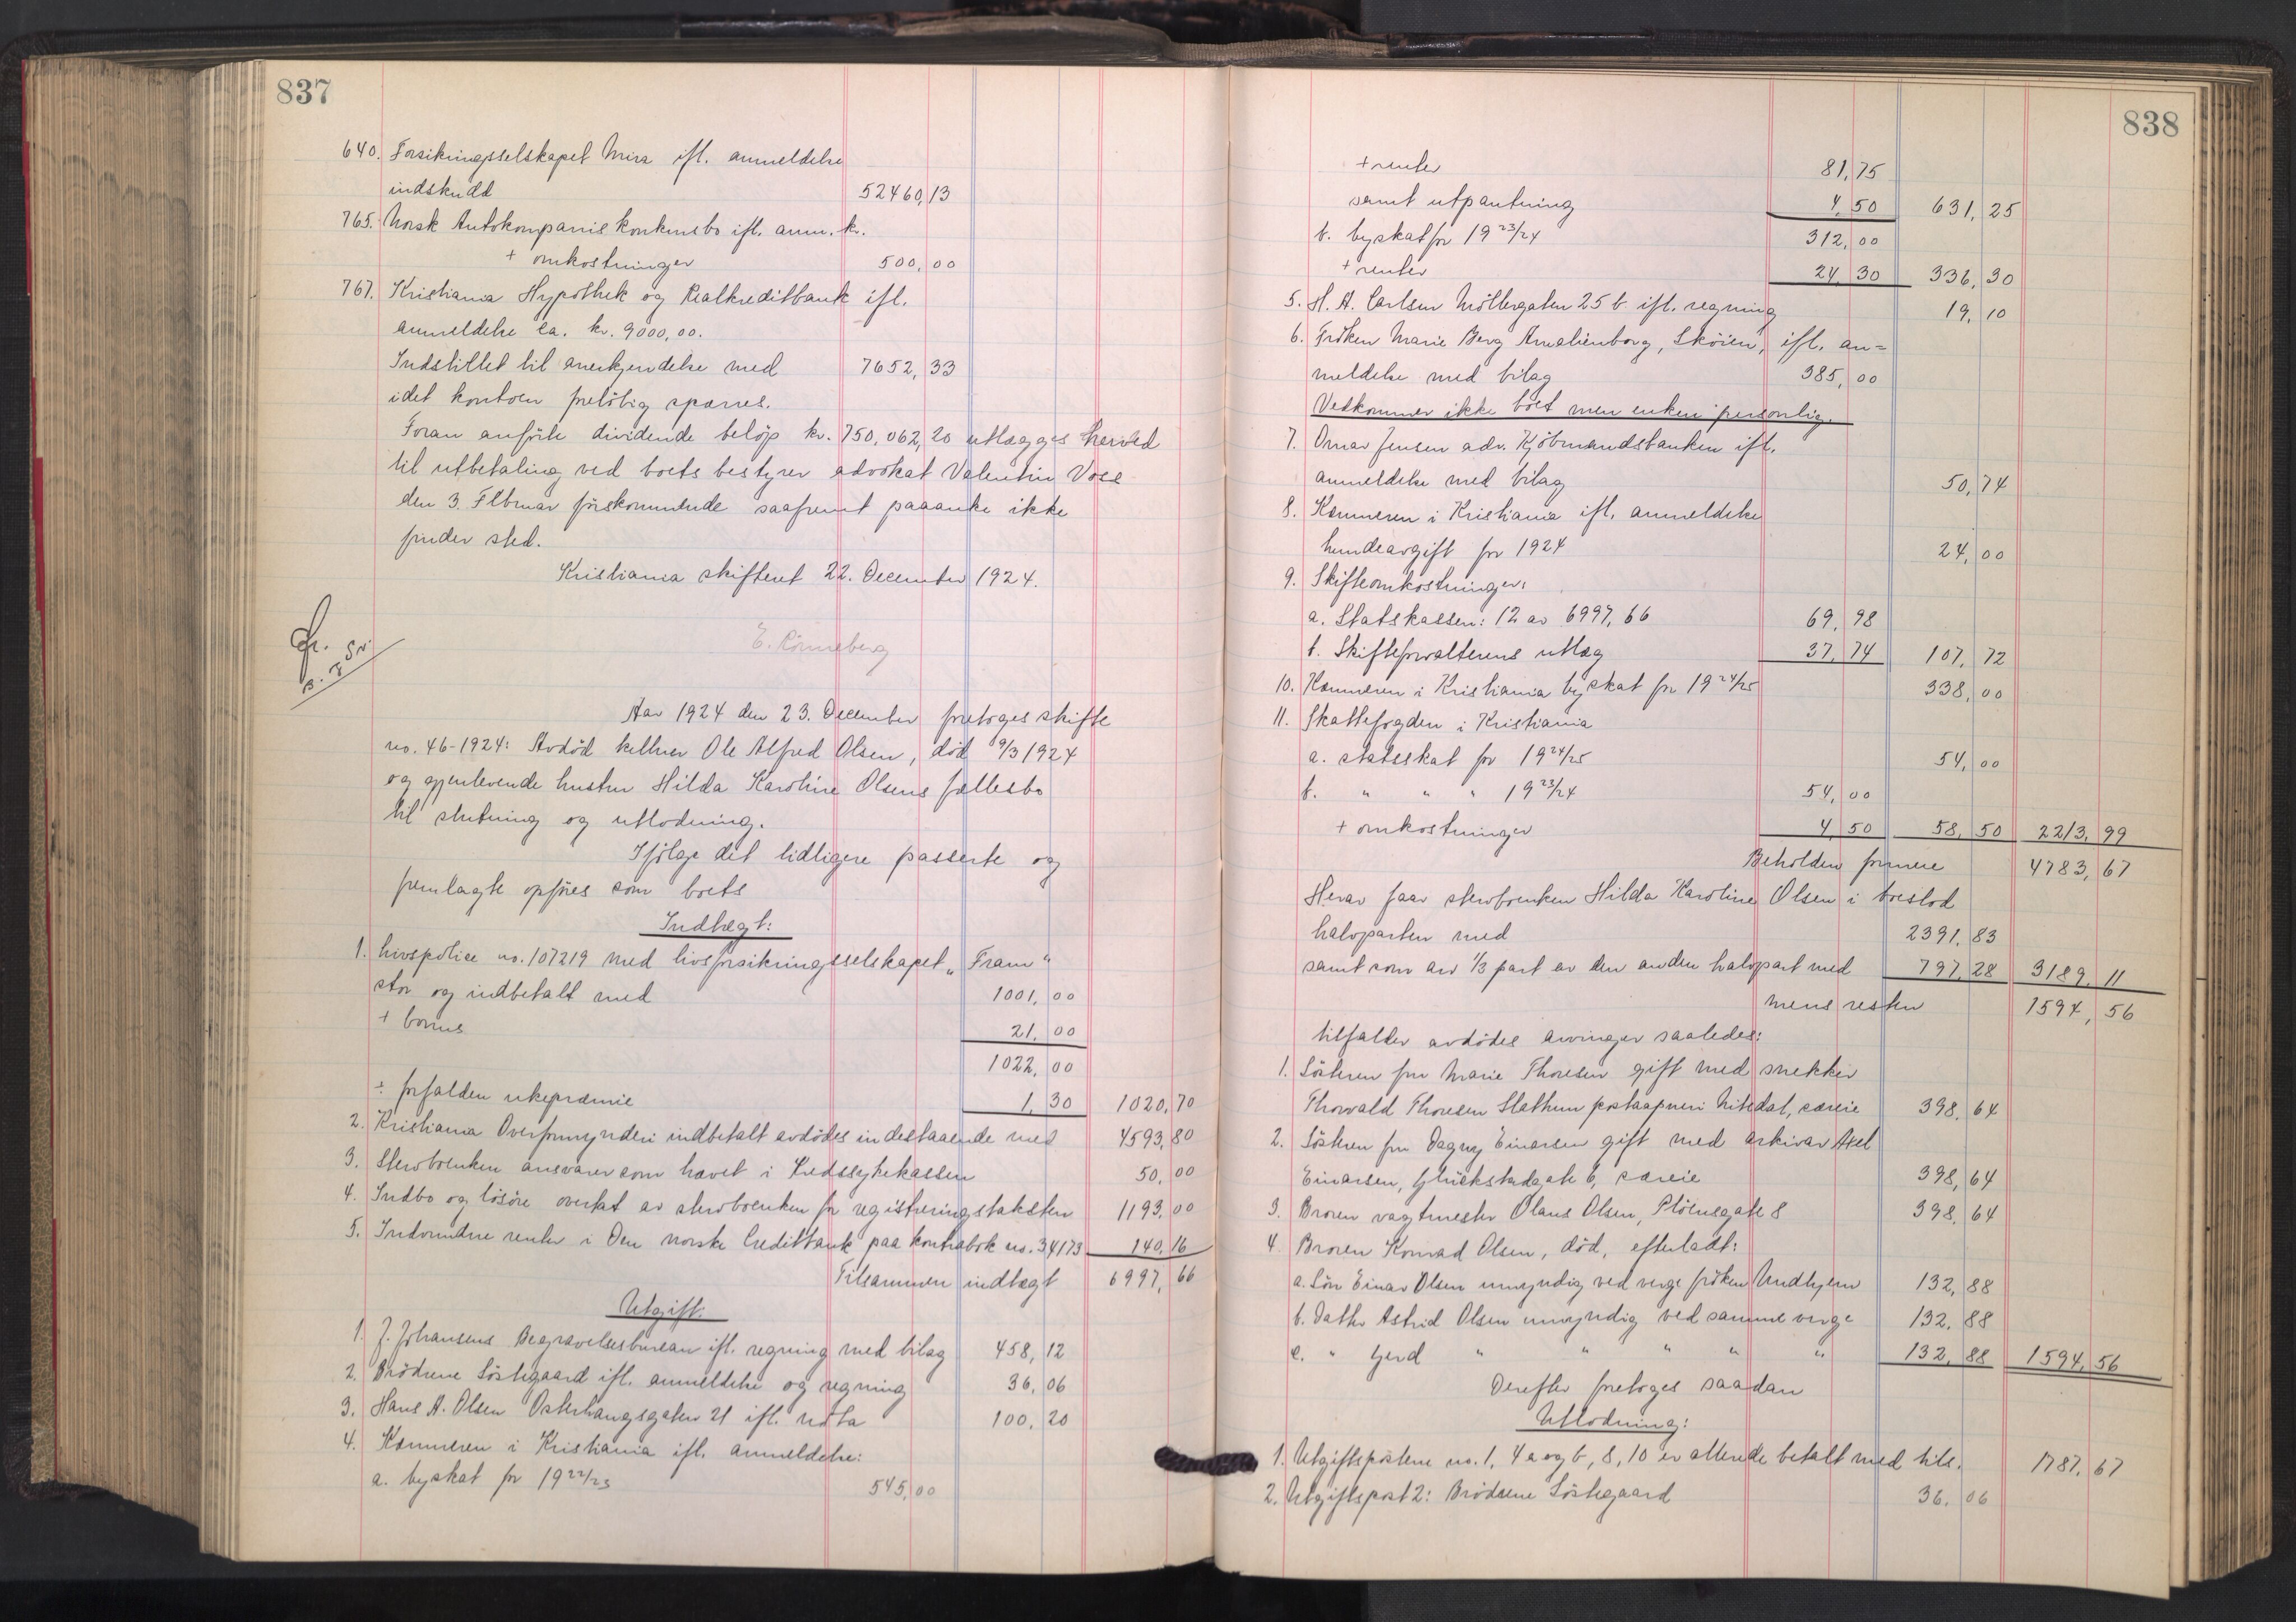 837
640. Forsikringsselskapet Mira ifl. anmeldelse
indskudd 52460,13
765. Norsk Autokompanis konkursbo ifl. anm. kr.
+ omkostninger 500,00
767. Kristiania Hypothek og Realkreditbank ifl.
anmeldelse ca. kr. 9000,00.
Indstillet til anerkjendelse med 7652,33
idet kontoen foreløbig sparres.
Foran anførte dividende beløp kr. 750,062,20 utlægges herved
til utbetaling ved boets bestyrer advokat Valentin Voss
den 3. Februar førskommende saafremt paaanke ikke
finder sted.
Kristiania skifteret 22. December 1924.
E. Rønneberg
Aar 1924 den 23. December foretoges skifte
no. 46-1924: Avdød kellner Ole Alfred Olsen, død 9/3 1924
og gjenlevende hustru Hilda Karoline Olsens fællesbo
til slutning og utlodning.
Ifølge det tidligere passerte og
fremlagte opføres som boets
Indtægt:
1. Livspolice no. 107219 med livsforsikringsselskapet "Fram"
stor og indbetalt med 1001,00
+ bonus 21,00
1022,00
÷ forfalden ukepræmie 1,30 1020,70
2. Kristiania Overformynderi indbetalt avdødes indestaaende med 4593,80
3. Stervboenken ansvarer som hævet i Kredssykekassen 50,00
4. Indbo og løsøre overtat av stervboenken for registreringstaksten 1193,00
5. Indvundne renter i Den norske Creditbank paa kontrabok no. 34173 140,16
Tilsammen indtægt 6997,66
Utgift.
1. J. Johansens Begravelsesbureau ifl. regning med bilag 458,12
2. Brødrene Søstegaard ifl. anmeldelse og regning 36,06
3. Hans A. Olsen Osterhausgaten 21 ifl. nota 100,20
4. Kæmneren i Kristiania ifl. anmeldelse:
a. byskat for 19 22/23 545,00
838
+ renter 81,75
samt utpantning 4,50 631,25
b. byskat for 19 23/24 312,00
+ renter 24,30 336,30
5. H. A. Carlsen Møllergaten 25 b ifl. regning 19,10
6. Frøken Marie Berg Amalienborg, Skøien, ifl. an=
meldelse med bilag 385,00
Vedkommer ikke boet men enken personlig.
7. Omar Jensen adr. Kjøbmandsbanken ifl.
anmeldelse med bilag 50,74
8. Kæmneren i Kristiania ifl. anmeldelse
hundeavgift for 1924 24,00
9. Skifteomkostninger:
a. Statskassen: 1% av 6997,66 69,98
b. Skifteforvalterens utlæg 37,74 107,72
10. Kæmneren i Kristiania byskat for 19 24/25 338,00
11. Skattefogden i Kristiania
a. statsskat for 19 24/25 54,00
b. " " " 19 23/24 54,00
+ omkostninger 4,50 58,50 2213,99
Beholden formue 4783,67
Herav faar stervboenken Hilda Karoline Olsen i boeslod
halvparten med 2391,83
samt som arv 1/3 part av den anden halvpart med 797,28 3189,11
mens resten 1594,56
tilfalder avdødes arvinger saaledes:
1. Søsteren fru Marie Thoresen gift med snekker
Thorvald Thoresen Slattum postaapneri Nitedal, særeie 398,64
2. Søsteren fru Dagny Einarsen gift med arkivar Axel
Einarsen, Glückstadgate 6, særeie 398,64
3. Broren vagtmester Olaus Olsen, Pløensgate 8 398,64
4. Broren Konrad Olsen, død, efterladt:
a. Søn Einar Olsen umyndig ved verge frøken Undhjem 132,88
b. Datter Astrid Olsen umyndig ved samme verge 132,88
c. " Gerd " " " " " 132,88 1594,56
Derefter foretoges saadan
Utlodning:
1. Utgiftspostene no. 1, 4 a og b, 8, 10 er allerede betalt med tils. 1787,67
2. Utgiftspost 2: Brødrene Søstegaard 36,06